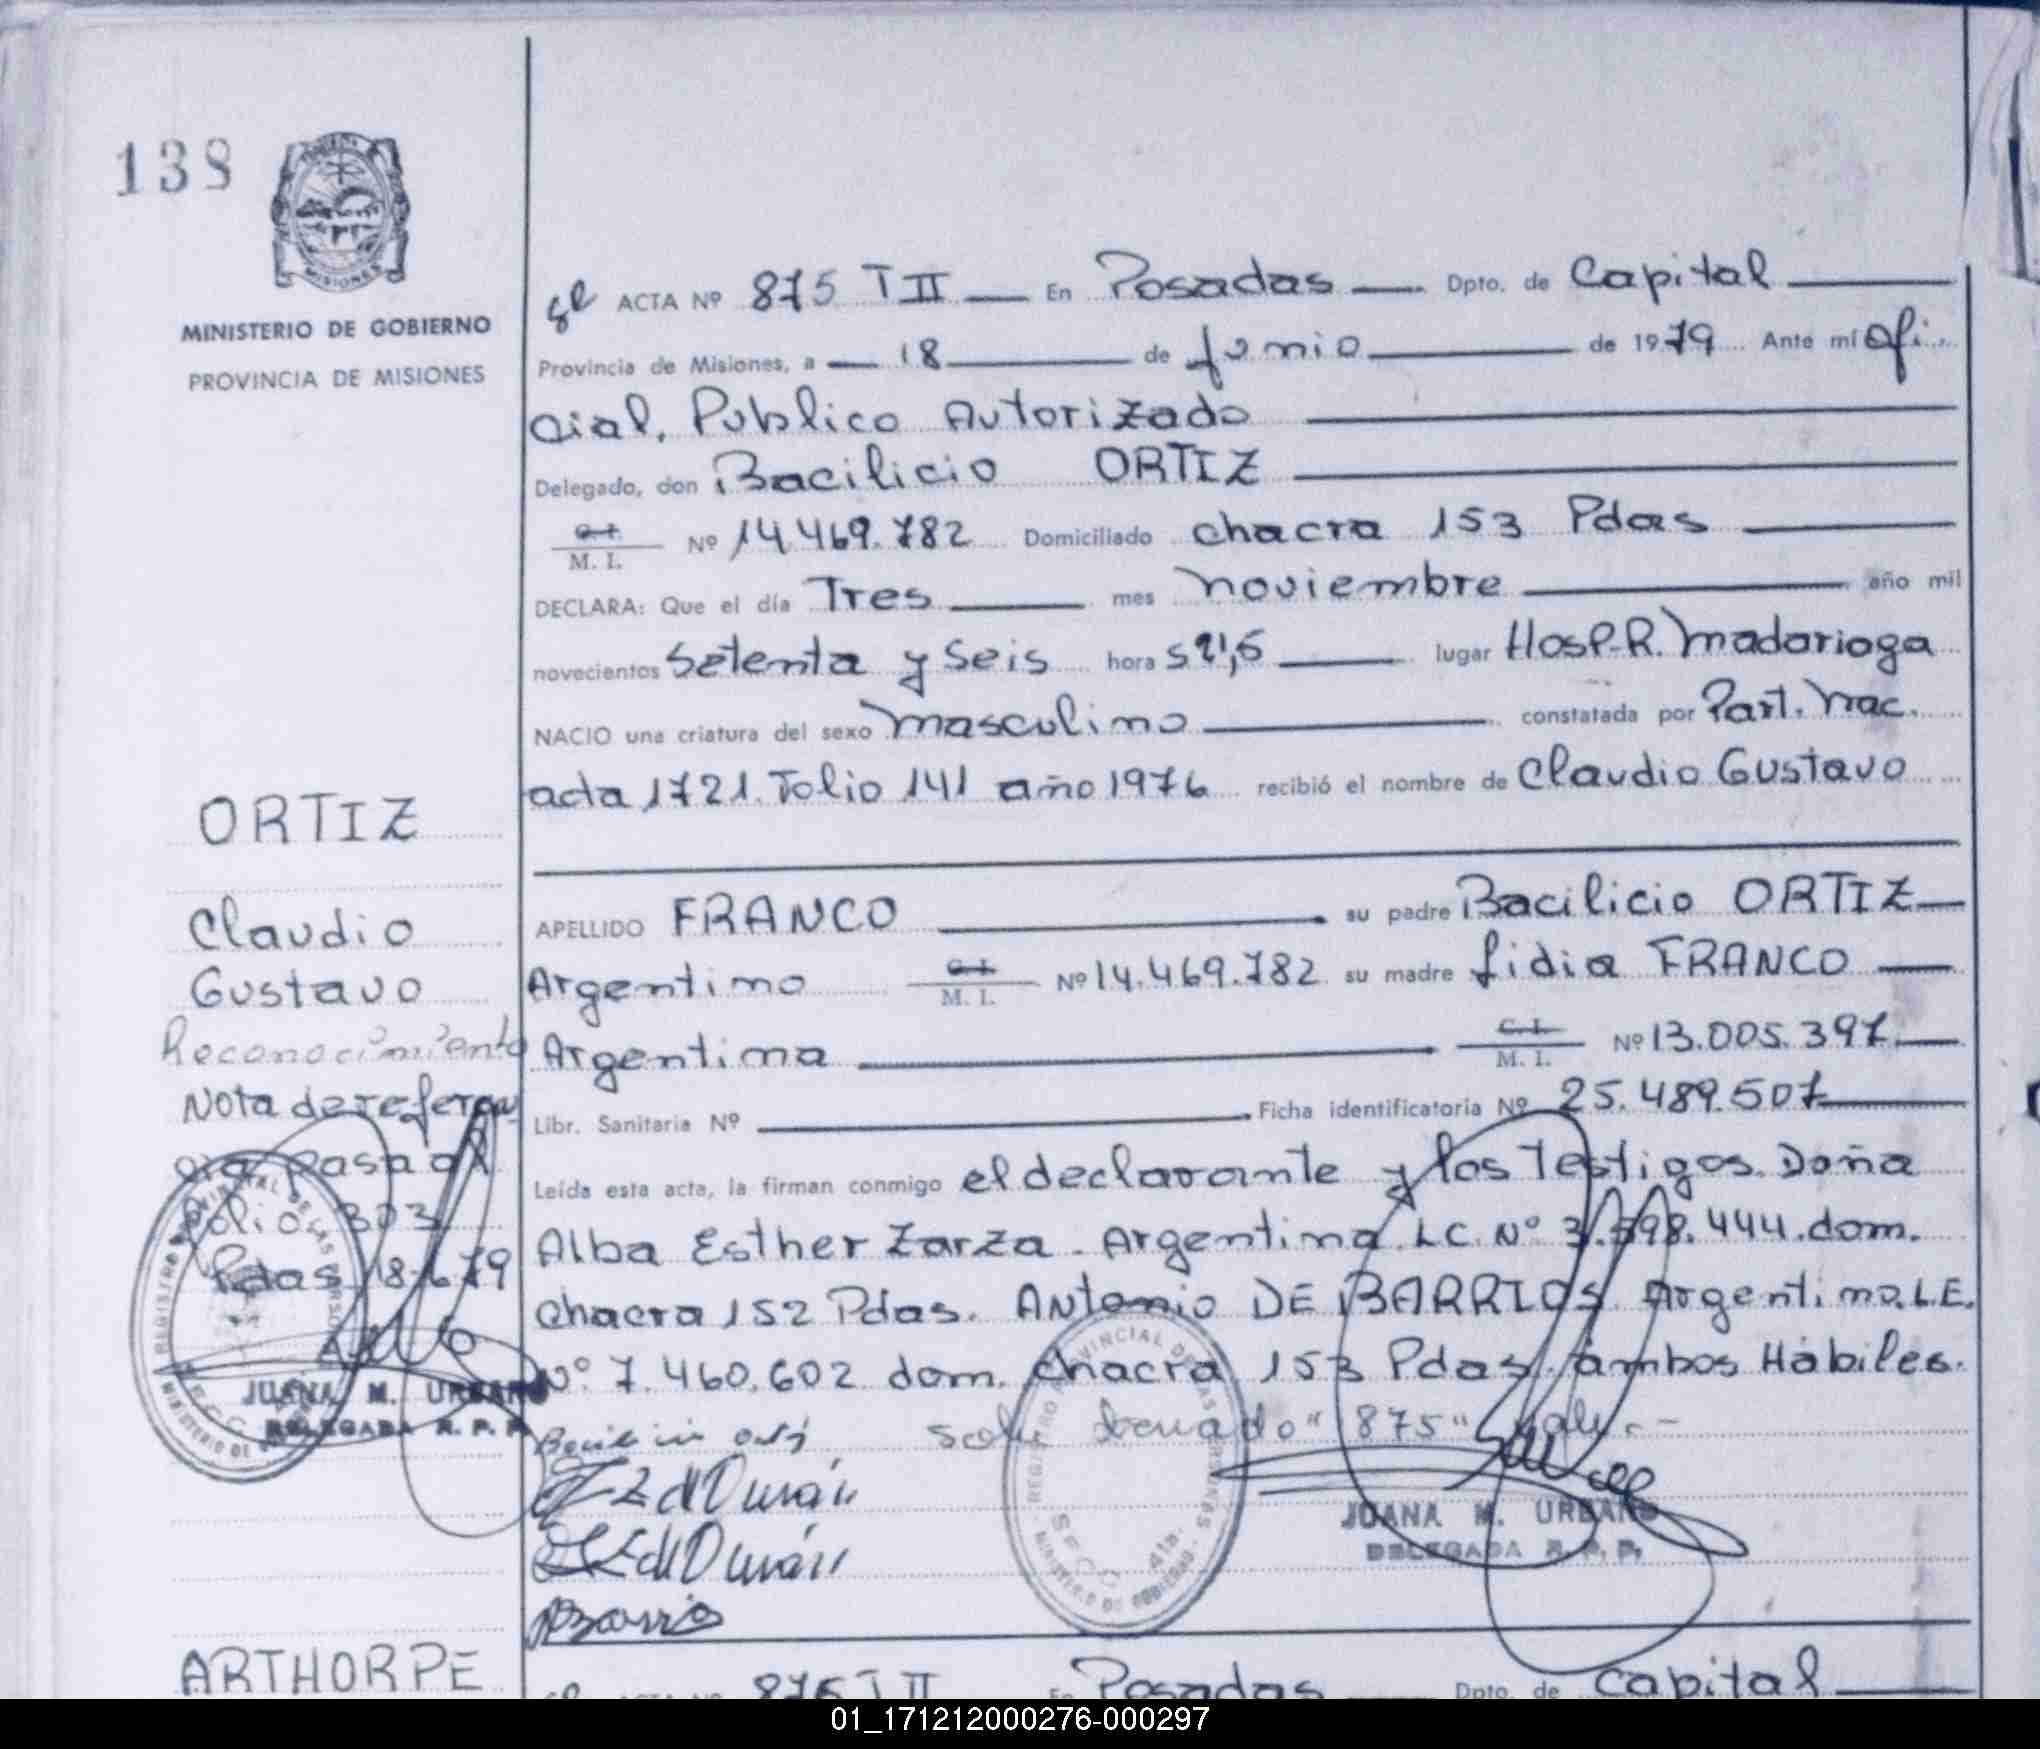 138
MISIONES
MINISTERIO DE GOBIERNO
PROVINCIA DE MISIONES
ACTA Nº 875 T II — En Posadas — Dpto. de Capital
Provincia de Misiones, a — 18 — de junio — de 1979 Ante mí Ofi-
cial, Publico Autorizado
Delegado, don Bacilicio ORTIZ
C.I. M. I. Nº 14.469.782 Domiciliado chacra 153 Pdas
DECLARA: Que el día Tres — mes noviembre — año mil
novecientos Setenta y Seis hora s 21,5 — lugar Hosp. R. Madariaga
NACIO una criatura del sexo masculino — constatada por Part. Nac.
acta 1721. Folio 141 año 1976 recibió el nombre de Claudio Gustavo
APELLIDO FRANCO — su padre Bacilicio ORTIZ —
Argentino C.I. M. I. Nº 14.469.782 su madre Lidia FRANCO —
Argentina — C.I. M. I. Nº 13.005.397 —
Libr. Sanitaria Nº — Ficha identificatoria Nº 25.489.507 —
Leída esta acta, la firman conmigo el declarante y los Testigos. Doña
Alba Esther Zarza. Argentina. LC. Nº 3.598.444. dom.
chacra 152 Pdas. Antonio DE BARRIOS Argentino. L.E.
Nº 7.460.602 dom. chacra 153 Pdas. ambos Hábiles.
"875" vale.-
ORTIZ
Claudio
Gustavo
Reconocimiento
Nota de referen
cia pasa al
folio 303
Pdas 18-6-79
JUANA M. URBANO
DELEGADA R. P. P.
REGISTRO PROVINCIAL DE LAS PERSONAS
MINISTERIO DE GOBIERNO
JUANA M. URBANO
DELEGADA R. P. P.
ARTHORPE
ACTA Nº 876 T II En Posadas — Dpto. de Capital —
01_171212000276-000297